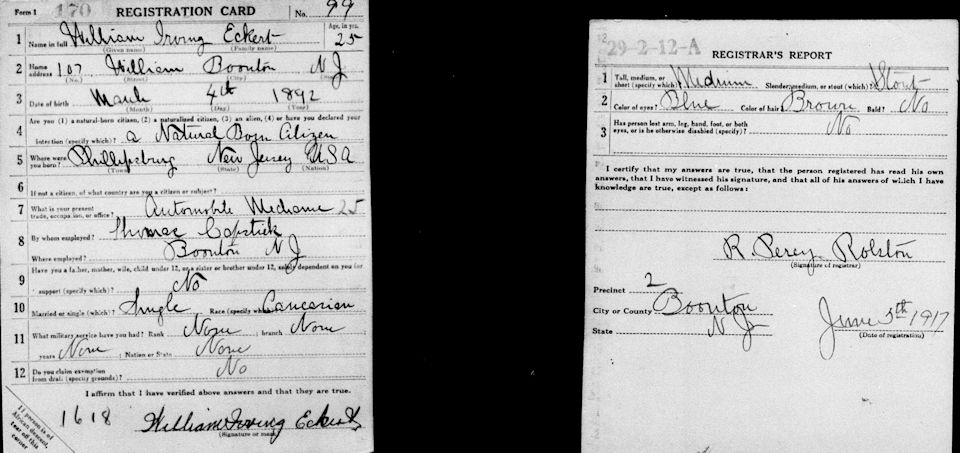 Form 1 170 REGISTRATION CARD No. 99
1 Name in full William Irving Eckert Age, in yrs. 25
(Given name) (Family name)
2 Home address 107 William Boonton N J
(No.) (Street) (City) (State)
3 Date of birth March 4th 1892
(Month) (Day) (Year)
4 Are you (1) a natural-born citizen, (2) a naturalized citizen, (3) an alien, (4) or have you declared your
intention (specify which)? a Natural Born Citizen
5 Where were you born? Phillipsburg New Jersey USA
(Town) (State) (Nation)
6 If not a citizen, of what country are you a citizen or subject?
7 What is your present trade, occupation, or office? Automobile Mechanic 25
8 By whom employed? Thomas Capstick
Where employed? Boonton N J
9 Have you a father, mother, wife, child under 12, or a sister or brother under 12, solely dependent on you for
support (specify which)? No
10 Married or single (which)? Single Race (specify which)? Caucasian
11 What military service have you had? Rank None branch None
years None ; Nation or State None
12 Do you claim exemption from draft (specify grounds)? No
I affirm that I have verified above answers and that they are true.
1618 William Irving Eckert
(Signature or mark)
If person is of
African descent,
tear off this
corner
29-2-12-A
REGISTRAR'S REPORT
1 Tall, medium, or short (specify which)? Medium Slender, medium, or stout (which)? Stout
2 Color of eyes? Blue Color of hair? Brown Bald? No
3 Has person lost arm, leg, hand, foot, or both
eyes, or is he otherwise disabled (specify)? No
I certify that my answers are true, that the person registered has read his own
answers, that I have witnessed his signature, and that all of his answers of which I have
knowledge are true, except as follows:
R. Percy Rolston
(Signature of registrar)
Precinct 2
City or County Boonton
State N J June 5th 1917
(Date of registration)